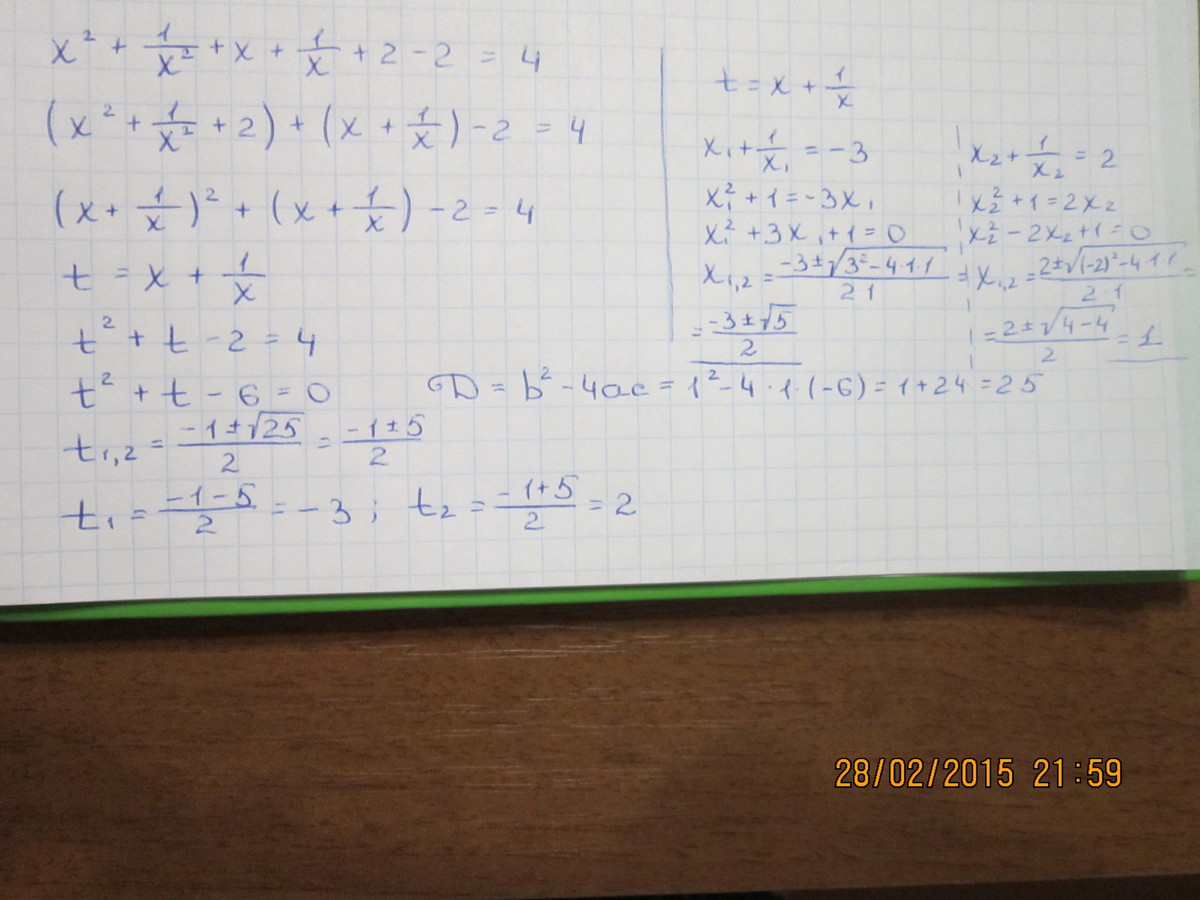 x² + 1/x² + x + 1/x + 2 - 2 = 4
(x² + 1/x² + 2) + (x + 1/x) - 2 = 4
(x + 1/x)² + (x + 1/x) - 2 = 4
t = x + 1/x
t² + t - 2 = 4
t² + t - 6 = 0
D = b² - 4ac = 1² - 4·1·(-6) = 1 + 24 = 25
t₁,₂ = (-1 ± √25)/2 = (-1 ± 5)/2
t₁ = (-1 - 5)/2 = -3; t₂ = (-1 + 5)/2 = 2
t = x + 1/x
x₁ + 1/x₁ = -3
x₁² + 1 = -3x₁
x₁² + 3x₁ + 1 = 0
x₁,₂ = (-3 ± √(3² - 4·1·1))/(2·1) =
= (-3 ± √5)/2
x₂ + 1/x₂ = 2
x₂² + 1 = 2x₂
x₂² - 2x₂ + 1 = 0
x₁,₂ = (2 ± √((-2)² - 4·1·1))/(2·1) =
= (2 ± √(4 - 4))/2 = 1
28/02/2015 21:59